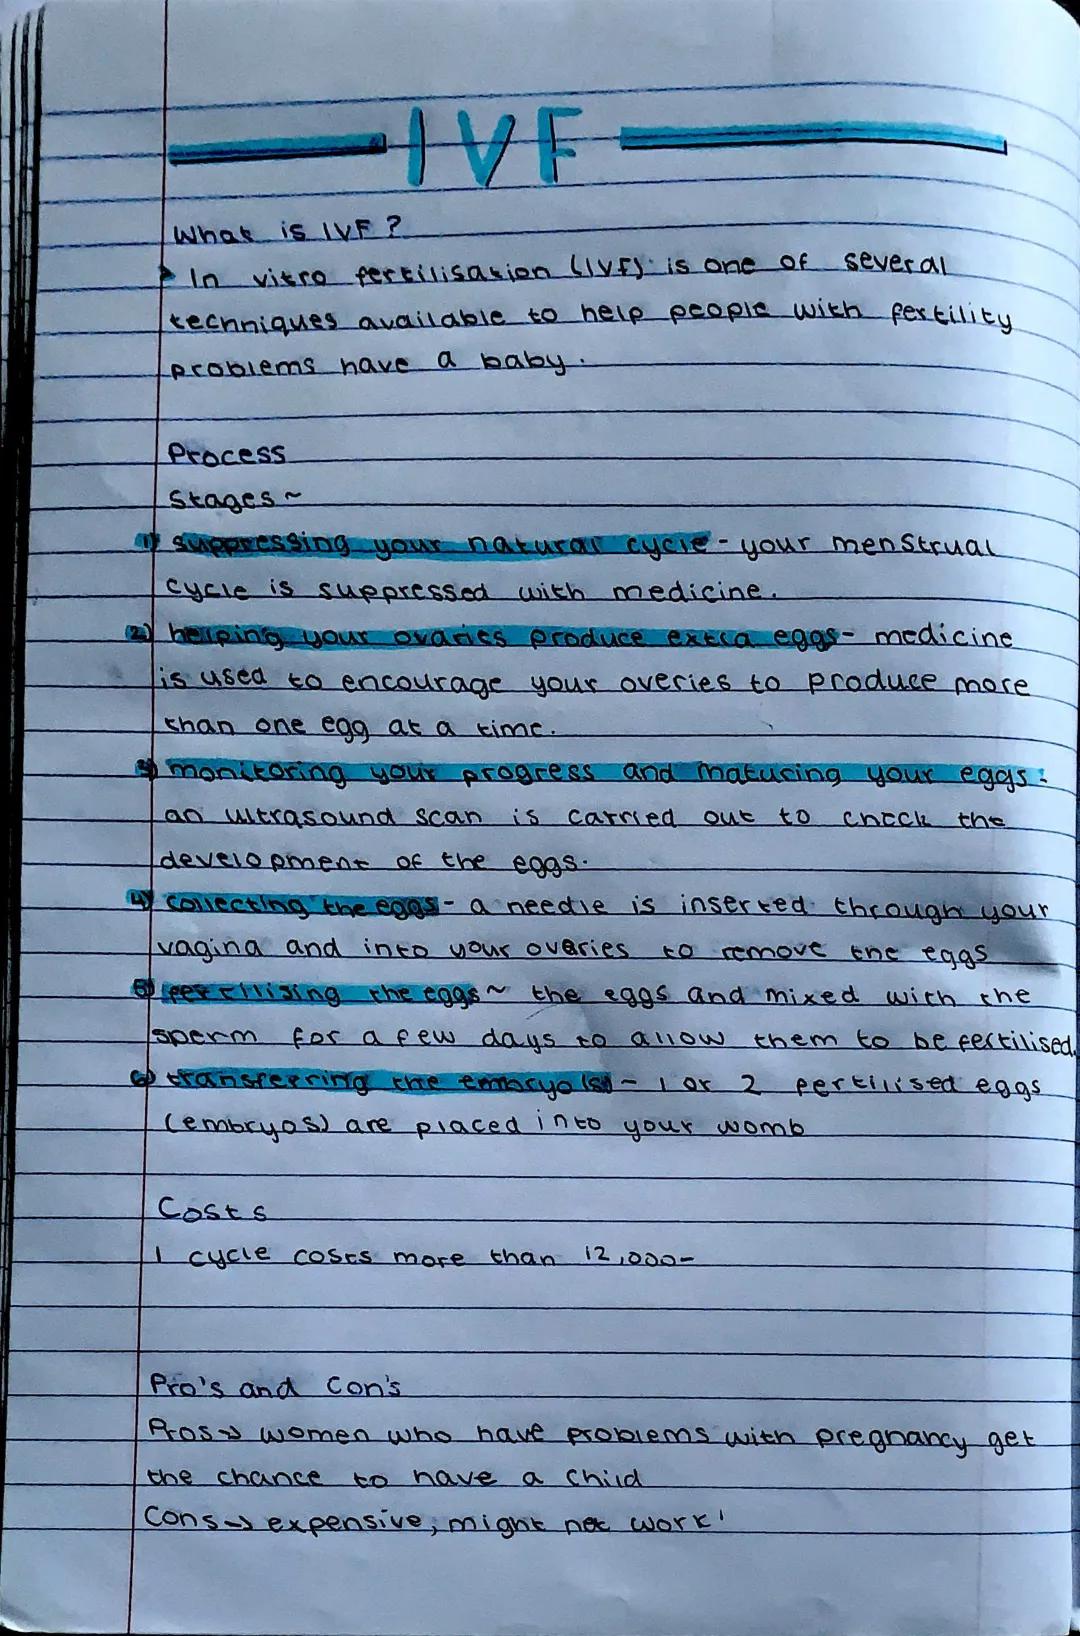 IVF
What is IVF?
In vitro fertilisation (IVF) is one of several
techniques available to help people with fertility
problems have a baby.
Process
Stages ~
1) suppressing your natural cycle - your menstrual
cycle is suppressed with medicine.
2) helping your ovaries produce extra eggs - medicine
is used to encourage your overies to produce more
than one egg at a time.
3) monitoring your progress and maturing your eggs:
an ultrasound scan is carried out to check the
development of the eggs.
4) collecting the eggs - a needle is inserted through your
vagina and into your ovaries to remove the eggs
5) fertilising the eggs ~ the eggs and mixed with the
sperm for a few days to allow them to be fertilised.
6) transferring the embryo(s) - 1 or 2 fertilised eggs
(embryos) are placed into your womb
Costs
1 cycle costs more than 12,000-
Pro's and Con's
Pros → women who have problems with pregnancy get
the chance to have a child
Cons → expensive, might not work!